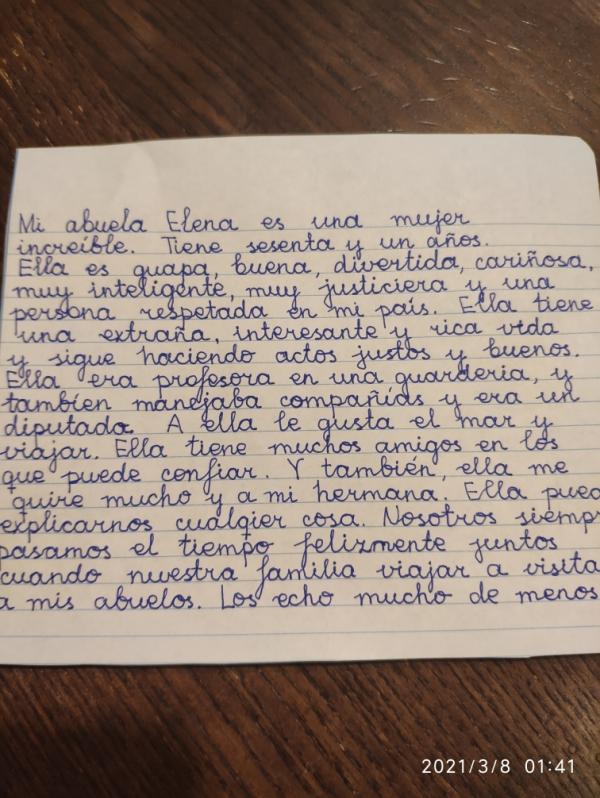 Mi abuela Elena es una mujer
increíble. Tiene sesenta y un años.
Ella es guapa, buena, divertida, cariñosa,
muy inteligente, muy justiciera y una
persona respetada en mi país. Ella tiene
una extraña, interesante y rica vida
y sigue haciendo actos justos y buenos.
Ella era profesora en una guarderia, y
tambien manejaba compañías y era un
diputado. A ella le gusta el mar y
viajar. Ella tiene muchos amigos en los
que puede confiar. Y también, ella me
quire mucho y a mi hermana. Ella pued
explicarnos cualqier cosa. Nosotros siempr
pasamos el tiempo felizmente juntos
cuando nuestra familia viajar a visita
a mis abuelos. Los echo mucho de menos
2021/3/8 01:41